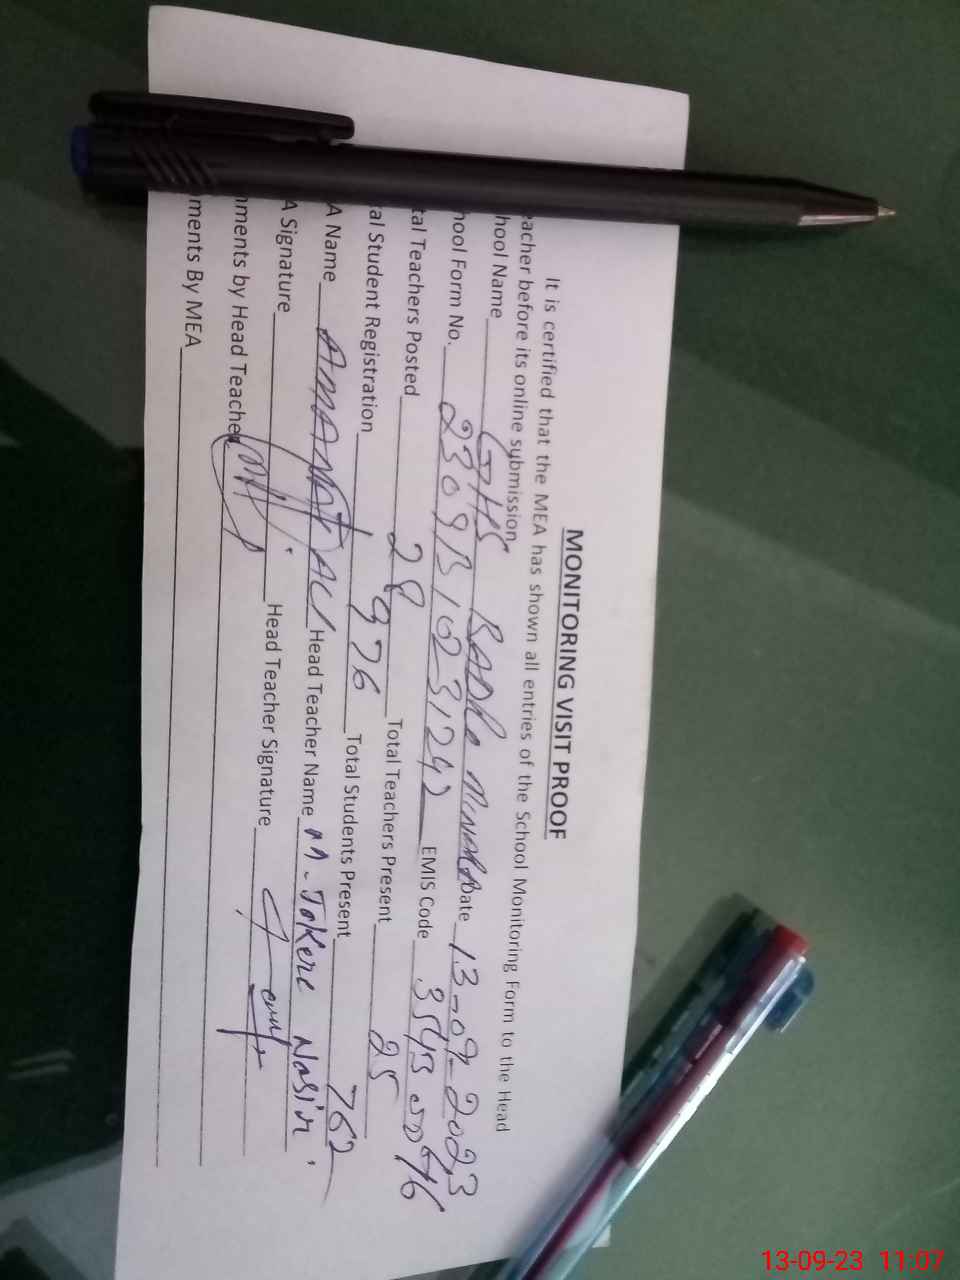 MONITORING VISIT PROOF
It is certified that the MEA has shown all entries of the School Monitoring Form to the Head
eacher before its online submission
hool Name GHS BADDO Date 13-09-2023
hool Form No. 2309B10231242 EMIS Code
tal Teachers Posted 28 Total Teachers Present 25
al Student Registration 976 Total Students Present 762
A Name AMANAT ALI Head Teacher Name M. Nasir
A Signature Head Teacher Signature
mments by Head Teacher
ments By MEA
13-09-23 11:07